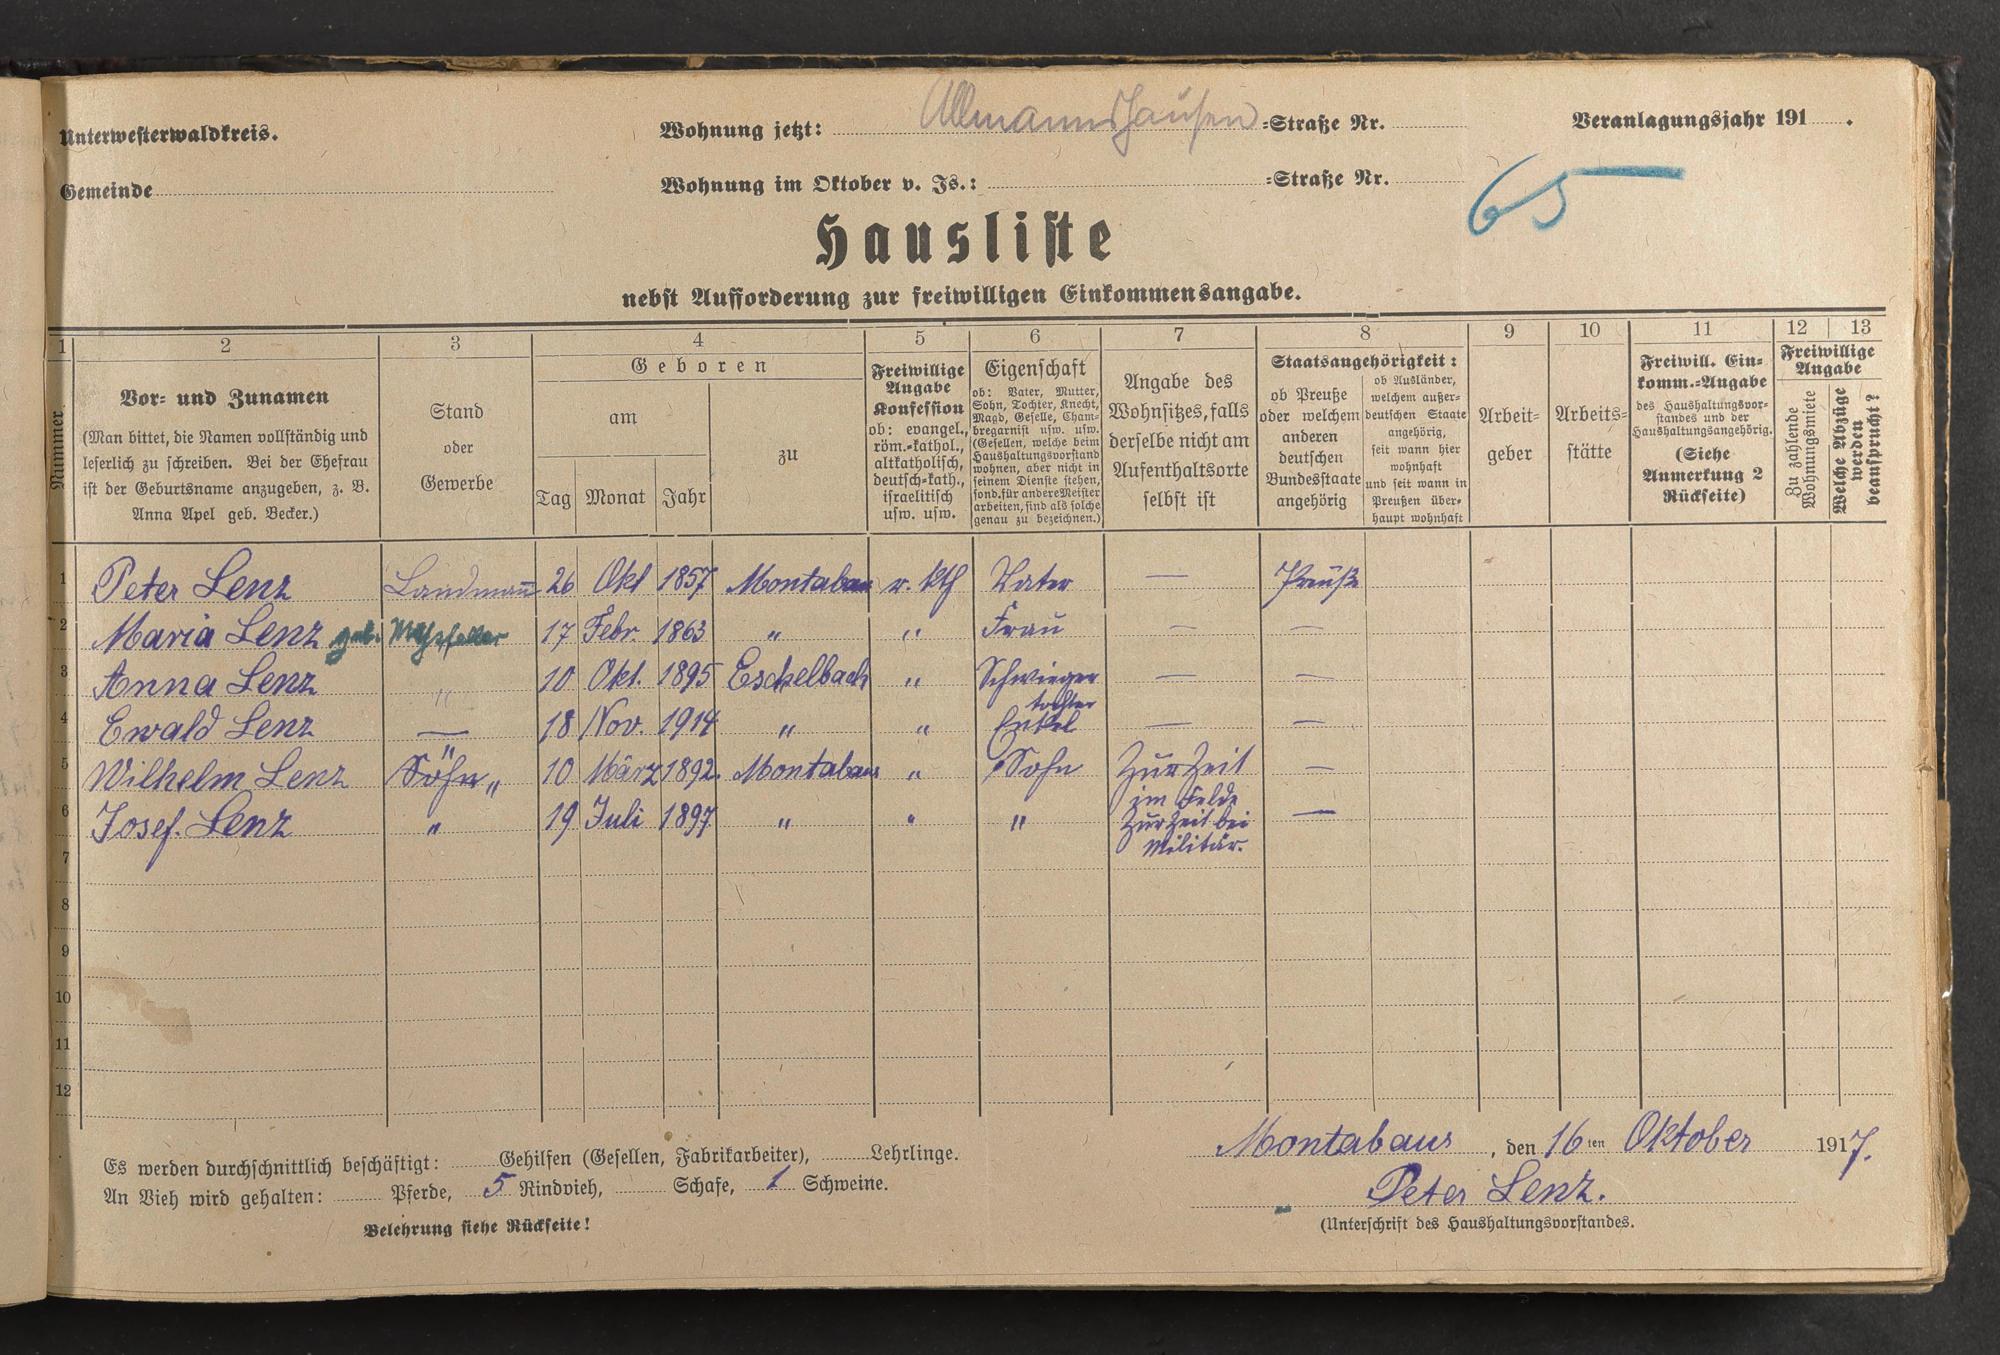 Unterwesterwaldkreis.
Wohnung jetzt: Allmannshausen =Straße Nr.
Veranlagungsjahr 191 .
Gemeinde
Wohnung im Oktober v. Js.: =Straße Nr.
65
Hausliste
nebst Aufforderung zur freiwilligen Einkommensangabe.
1 2 3 4 5 6 7 8 9 10 11 12 13
Nummer
Vor- und Zunamen
(Man bittet, die Namen vollständig und
leserlich zu schreiben. Bei der Ehefrau
ist der Geburtsname anzugeben, z. B.
Anna Apel geb. Becker.)
Stand
oder
Gewerbe
Geboren
am
Tag Monat Jahr
zu
Freiwillige
Angabe
Konfession
ob: evangel.,
röm.-kathol.,
altkatholisch,
deutsch-kath.,
israelitisch
usw. usw.
Eigenschaft
ob: Vater, Mutter,
Sohn, Tochter, Knecht,
Magd, Geselle, Cham-
bregarnist usw. usw.
(Gesellen, welche beim
Haushaltungsvorstand
wohnen, aber nicht in
seinem Dienste stehen,
sond. für andere Meister
arbeiten, sind als solche
genau zu bezeichnen.)
Angabe des
Wohnsitzes, falls
derselbe nicht am
Aufenthaltsorte
selbst ist
Staatsangehörigkeit:
ob Preuße
oder welchem
anderen
deutschen
Bundesstaate
angehörig
ob Ausländer,
welchem außer-
deutschen Staate
angehörig,
seit wann hier
wohnhaft
und seit wann in
Preußen über-
haupt wohnhaft
Arbeit-
geber
Arbeits-
stätte
Freiwill. Ein-
komm.-Angabe
des Haushaltungsvor-
standes und der
Haushaltungsangehörig.
(Siehe
Anmerkung 2
Rückseite)
Freiwillige
Angabe
Zu zahlende
Wohnungsmiete
Welche Abzüge
werden
beansprucht?
1 Peter Lenz Landmann 26 Okt 1857 Montabaur r. kth Vater — Preuße
2 Maria Lenz geb. 17 Febr. 1863 " " Frau — —
3 Anna Lenz " 10 Okt. 1895 Eschelbach " Schwieger — —
tochter
4 Ewald Lenz — 18 Nov. 1914 " " Enkel — —
5 Wilhelm Lenz Sohn " 10 März 1892. Montabaur " Sohn Zur Zeit —
im Felde
6 Josef. Lenz " 19 Juli 1897 " " " Zur Zeit bei —
Militär.
7
8
9
10
11
12
Montabaur, den 16ten Oktober 1917.
Es werden durchschnittlich beschäftigt: Gehilfen (Gesellen, Fabrikarbeiter), Lehrlinge.
An Vieh wird gehalten: Pferde, 5 Rindvieh, Schafe, 1 Schweine.
Peter Lenz.
Belehrung siehe Rückseite!
(Unterschrift des Haushaltungsvorstandes.